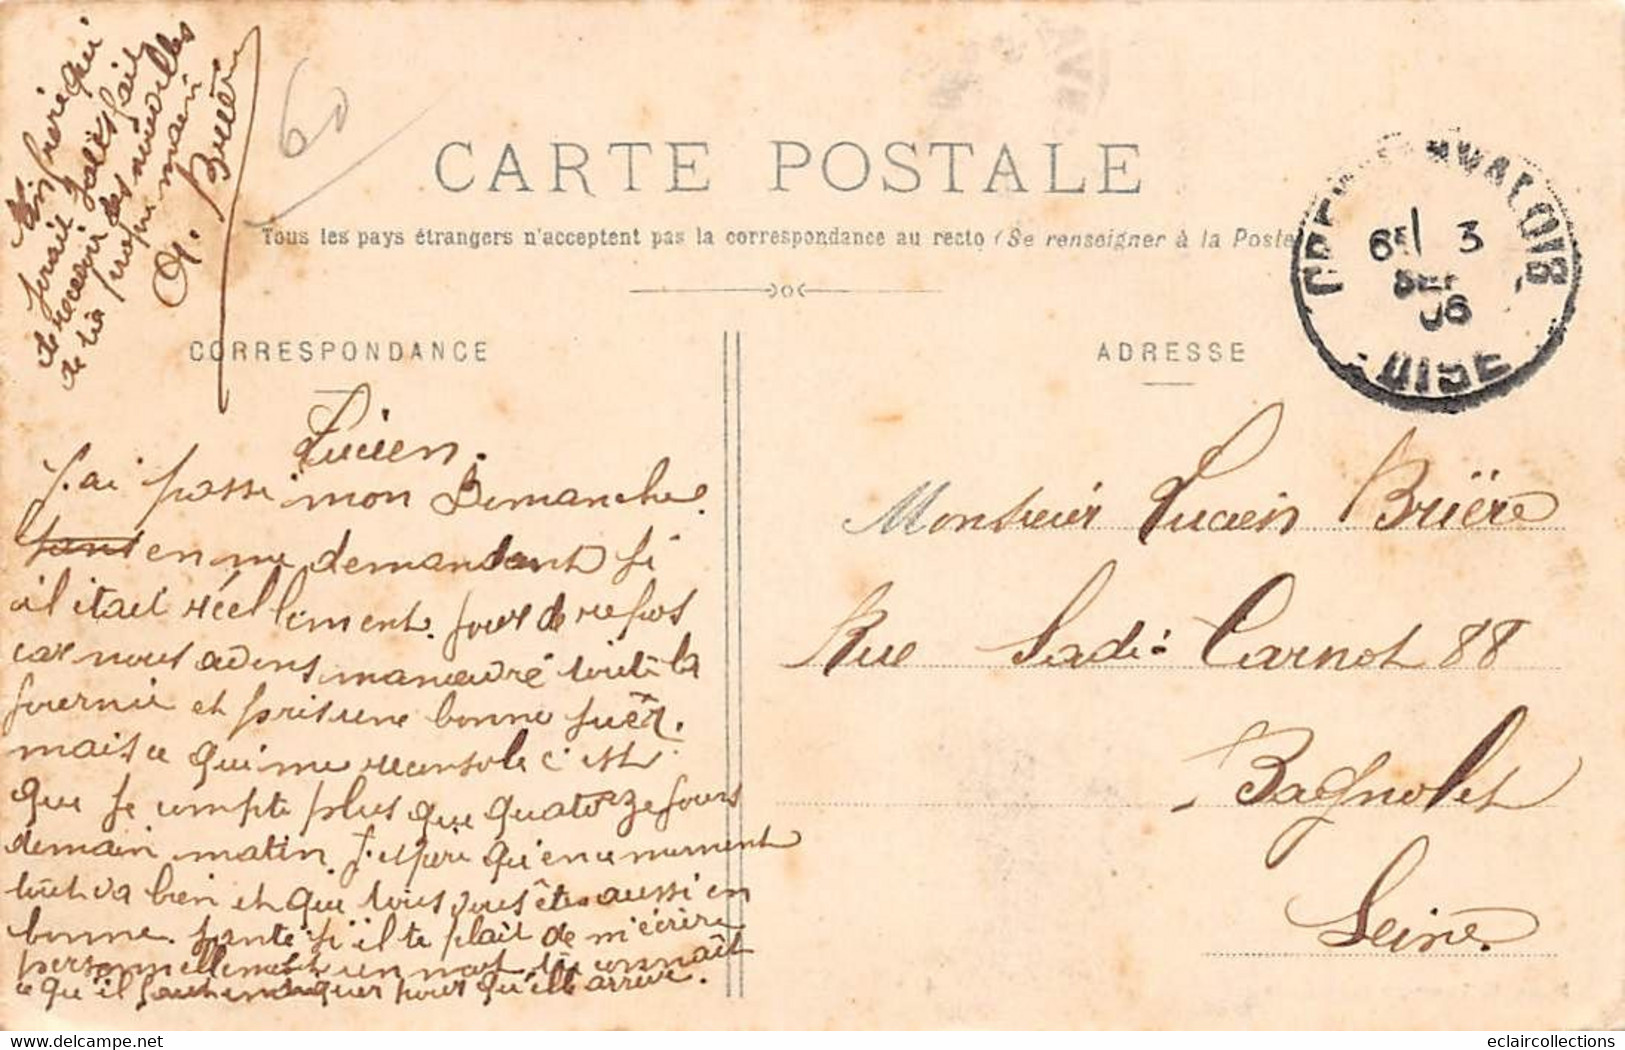 Ton frère qui
serait
de recevoir des nouvelles
de ta propre main
CARTE POSTALE
Tous les pays étrangers n'acceptent pas la correspondance au recto (Se renseigner à la Poste
CORRESPONDANCE
ADRESSE
65 3
SEP
06
OISE
Lucien.
J'ai passé mon Dimanche
tant en me demandant si
il était réellement jour de repos
car nous avons manœuvré toute la
journée et pris une bonne suée.
mais ce qui me reconsole c'est
que je compte plus que quatorze jours
demain matin. J'espère qu'en ce moment
tout va bien et que tous vous êtes aussi en
bonne santé s'il te plait de m'écrire
personnellement un mot tu connait
ce qu'il faut indiquer pour qu'elle arrive.
Monsieur Lucien Brière
Rue Sadi-Carnot 88
Bagnolet
Seine.
eclaircollections
www.delcampe.net